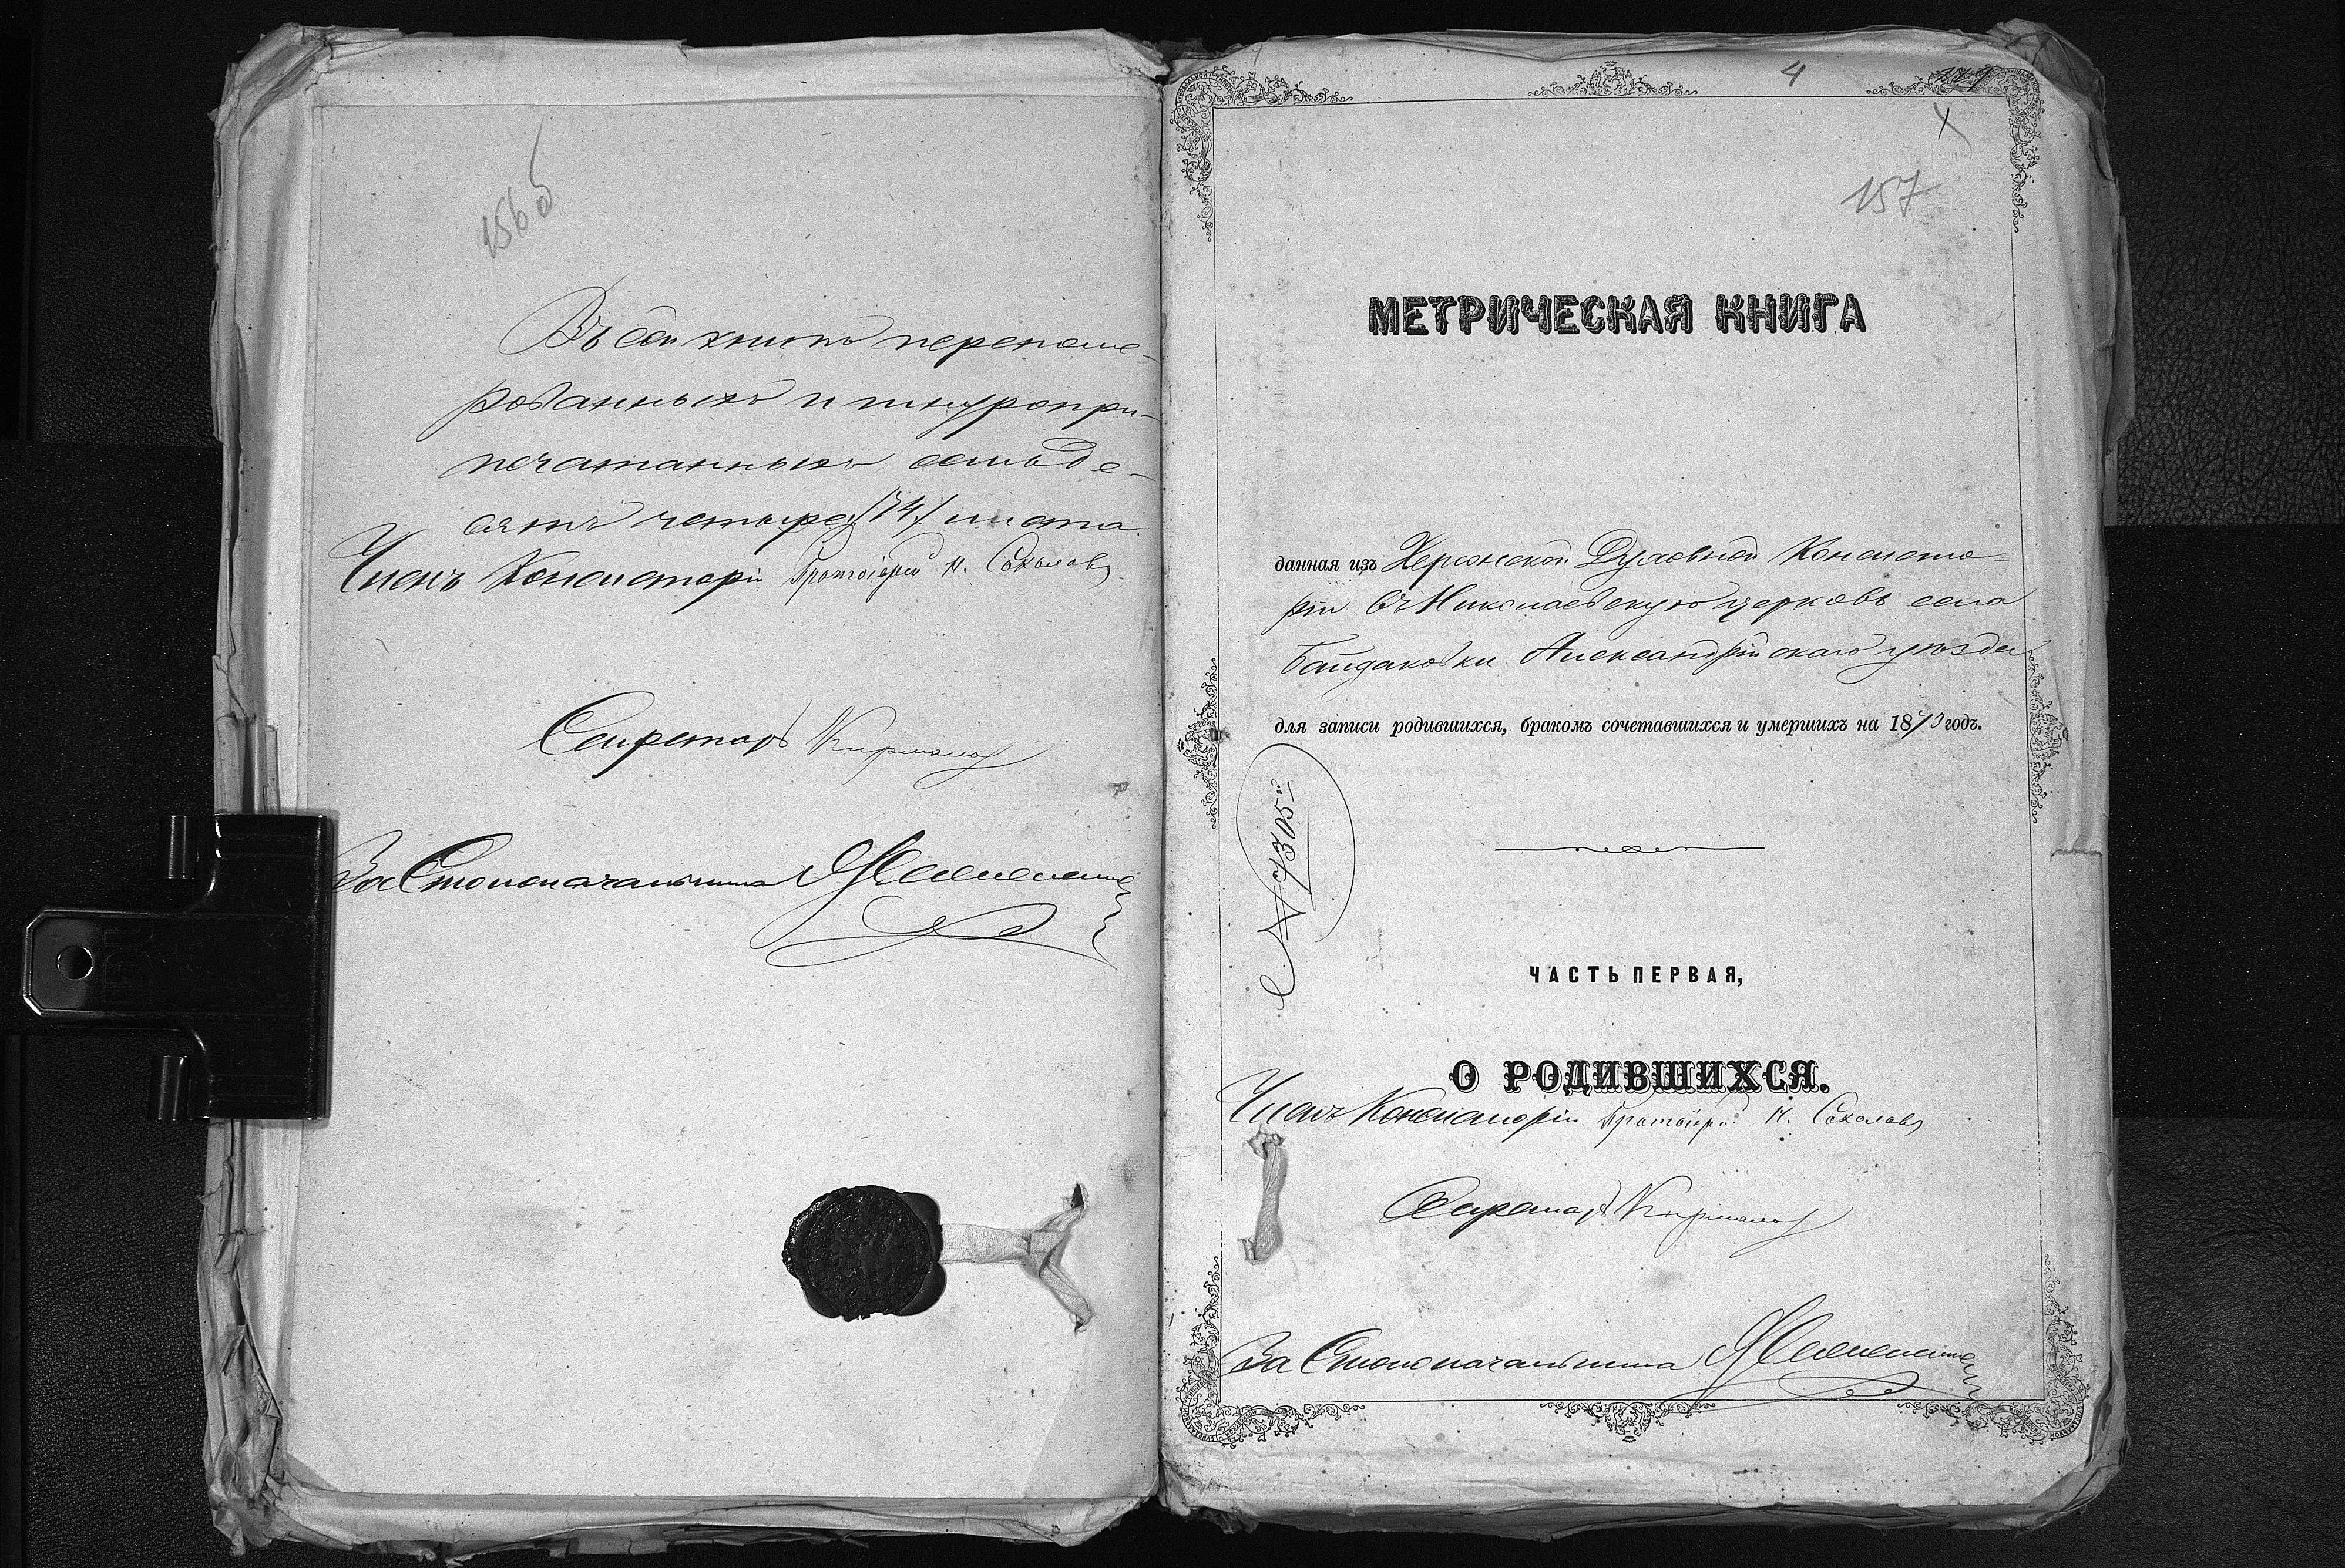 156 об
Въ сей книгѣ перенуме-
рованныхъ и шнуропри-
печатанныхъ семьде-
сятъ четыре /74/ листа
Членъ Консисторіи Протоіерей Н. Соколовъ
Секретарь
За Столоначальника
4
157
МЕТРИЧЕСКАЯ КНИГА
данная изъ Херсонской Духовной Консисто-
ріи въ Николаевскую церковь села
Байдаковки Александрійскаго уѣзда
для записи родившихся, бракомъ сочетавшихся и умершихъ на 1873 годъ.
ЧАСТЬ ПЕРВАЯ,
О РОДИВШИХСЯ.
Членъ Консисторіи Протоіерей Н. Соколовъ
Секретарь
За Столоначальника